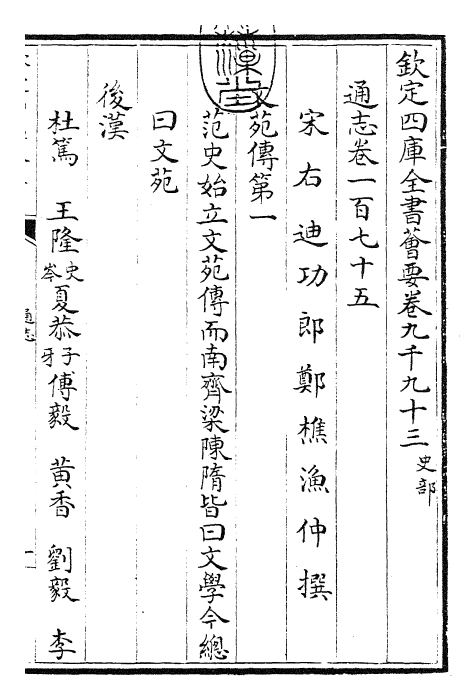 欽定四庫全書薈要卷九千九十三 史部
通志卷一百七十五
宋右迪功郎鄭樵漁仲撰
文苑傳第一
范史始立文苑傳而南齊梁陳隋皆曰文學今總
曰文苑
後漢
杜篤 王隆史岑 夏恭子牙 傅毅 黃香 劉毅 李
通志